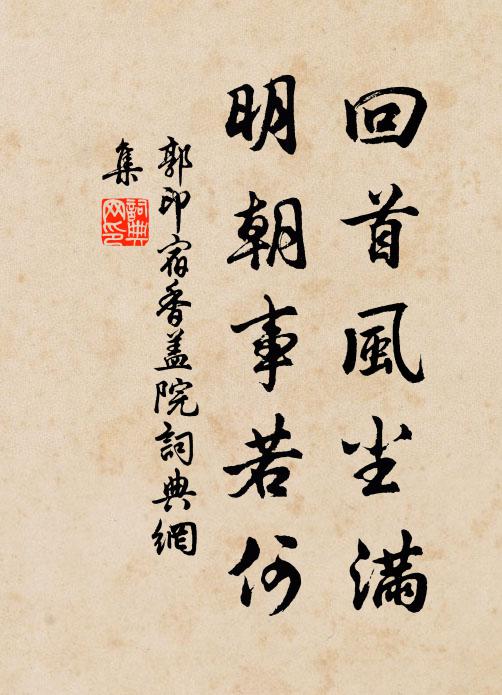 回首風尘滿
明朝事若何
郭印宿香盖院詞典網
集
詞典
网印